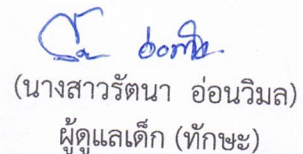 (นางสาวรัตนา อ่อนวิมล)
ผู้ดูแลเด็ก (ทักษะ)